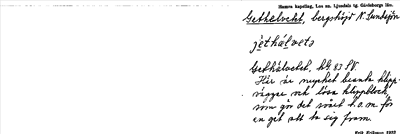 Hamra kapellag, Los sn. Ljusdals tg. Gävleborgs län.
Gethelvetet, bergshöjd N. Sundsjön
jèthälvetə
Gethälvetet, kG 83 SV.
Här är mycket branta klipp-
väggar och lösa klippblock,
som gör det svårt t.o.m. för
en get att ta sig fram.
Erik Eriksson 1933